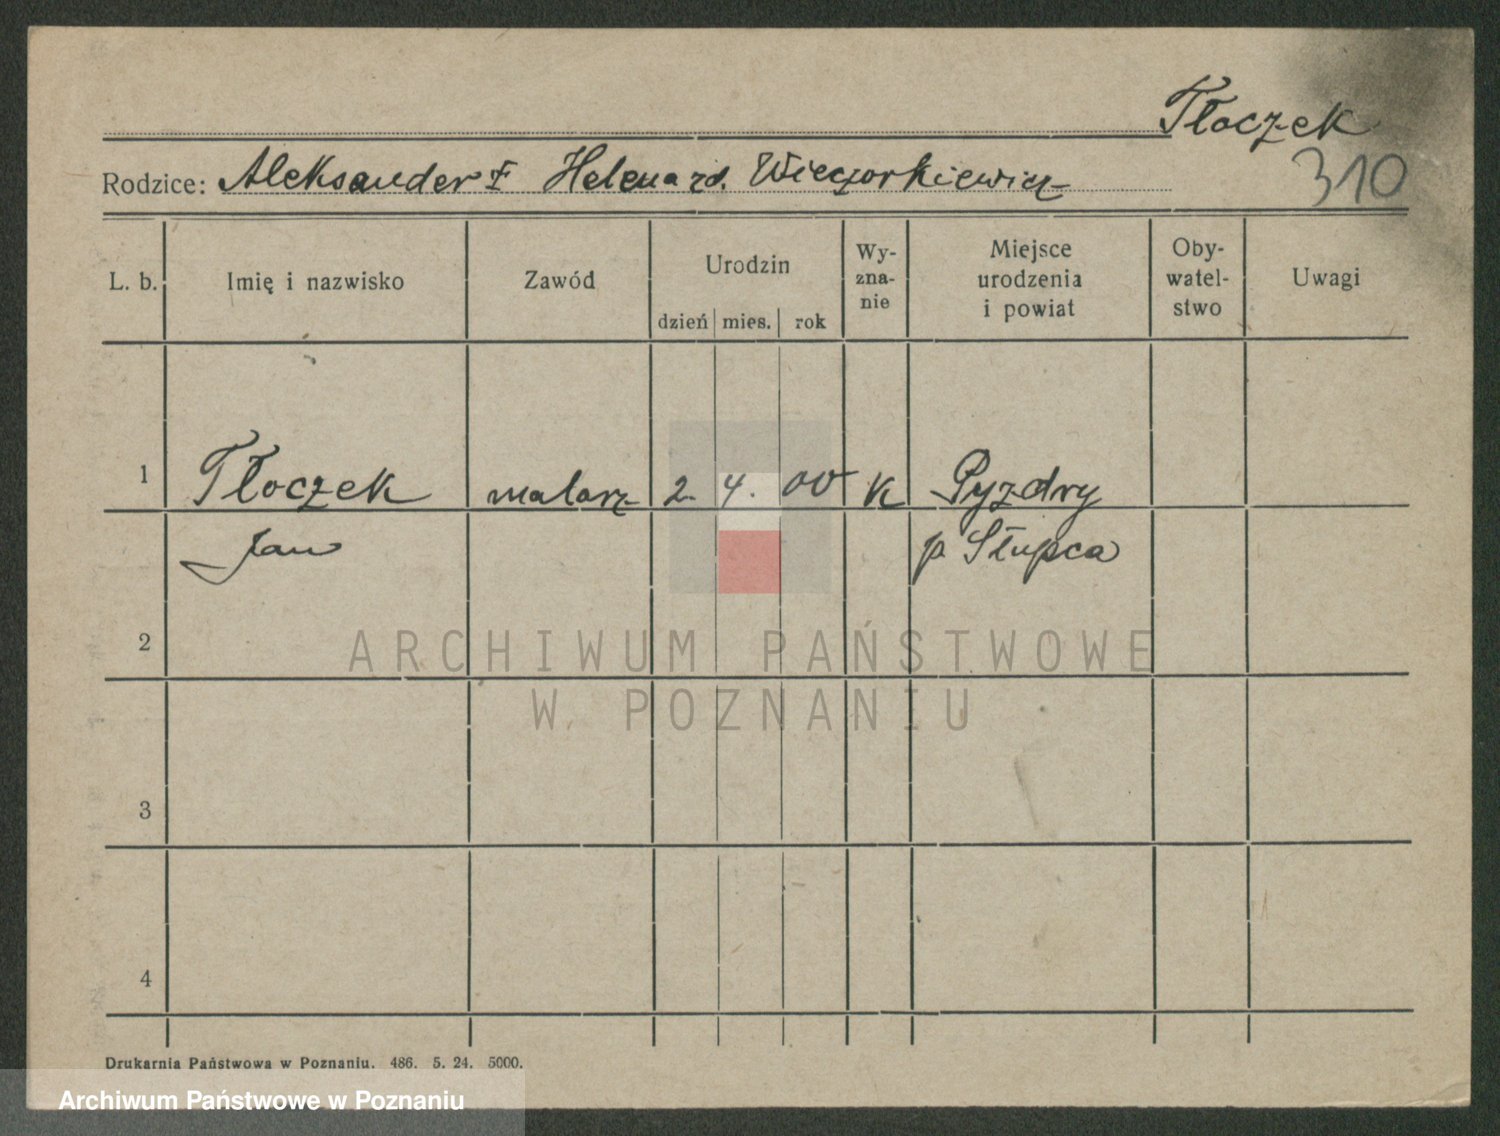 Tłoczek
Rodzice: Aleksander i Helena zd. Wieczorkiewicz
310
L. b. Imię i nazwisko Zawód Urodzin dzień mies. rok Wy-zna-nie Miejsce urodzenia i powiat Oby-watel-stwo Uwagi
1 Tłoczek malarz 2. 4. 00 K Pyzdry
Jan p. Słupca
2
ARCHIWUM PAŃSTWOWE
W POZNANIU
3
4
Drukarnia Państwowa w Poznaniu. 486. 5. 24. 5000.
Archiwum Państwowe w Poznaniu